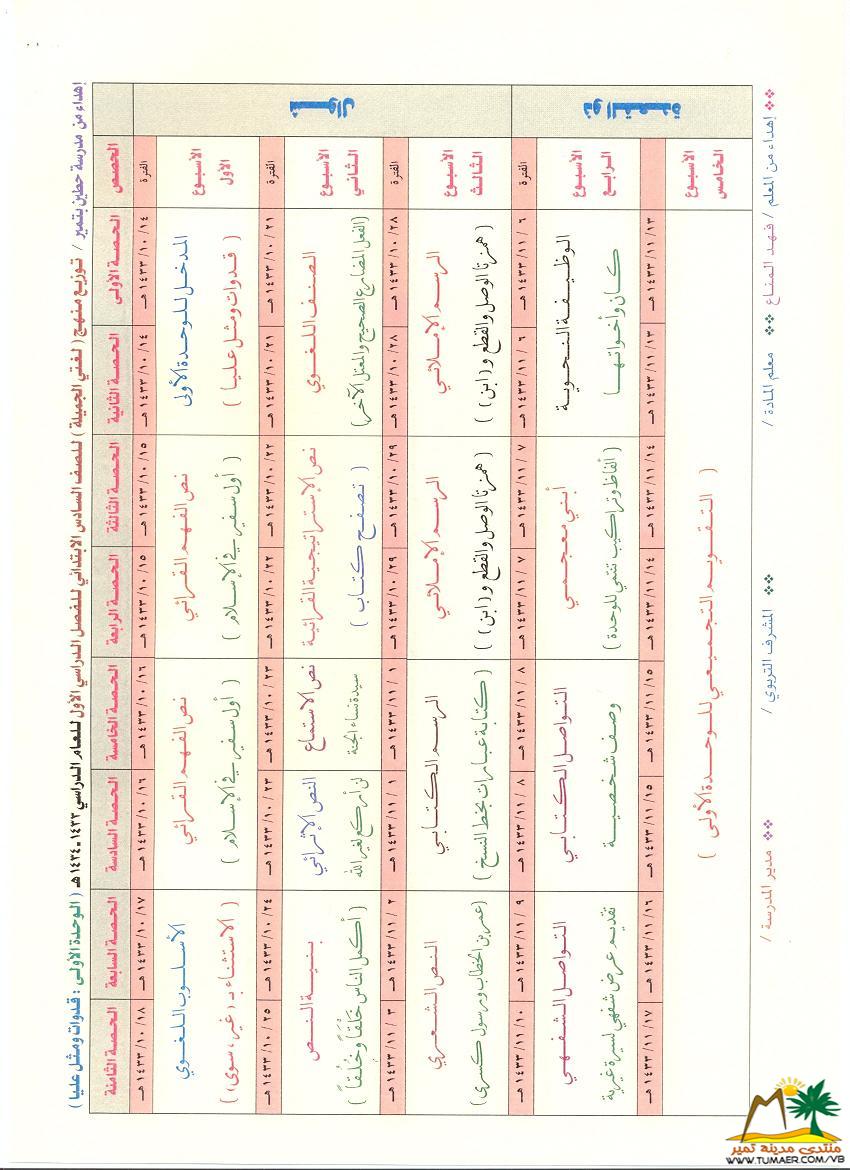 إهداء من مدرسة حطين بتمير / توزيع منهج ( لغتي الجميلة ) للصف السادس الابتدائي للفصل الدراسي الأول للعام الدراسي ١٤٣٣ ـ ١٤٣٤ هـ ( الوحدة الأولى : قدوات ومثل عليا )
الحصص
الحصة الأولى
الحصة الثانية
الحصة الثالثة
الحصة الرابعة
الحصة الخامسة
الحصة السادسة
الحصة السابعة
الحصة الثامنة
شوال
الفترة
١٤٣٣/١٠/١٤ هـ
١٤٣٣/١٠/١٤ هـ
١٤٣٣/١٠/١٥ هـ
١٤٣٣/١٠/١٥ هـ
١٤٣٣/١٠/١٦ هـ
١٤٣٣/١٠/١٦ هـ
١٤٣٣/١٠/١٧ هـ
١٤٣٣/١٠/١٨ هـ
الأسبوع
الأول
المدخل للوحدة الأولى
( قدوات ومثل عليا )
نص الفهم القرائي
( أول سفير في الإسلام )
نص الفهم القرائي
( أول سفير في الإسلام )
الأسلوب اللغوي
( الاستثناء بـ ( غير ، سوى ) )
الفترة
١٤٣٣/١٠/٢١ هـ
١٤٣٣/١٠/٢١ هـ
١٤٣٣/١٠/٢٢ هـ
١٤٣٣/١٠/٢٢ هـ
١٤٣٣/١٠/٢٣ هـ
١٤٣٣/١٠/٢٣ هـ
١٤٣٣/١٠/٢٤ هـ
١٤٣٣/١٠/٢٥ هـ
الأسبوع
الثاني
الصنف اللغوي
(الفعل المضارع الصحيح والمعتل الآخر)
نص الإستراتيجية القرائية
( تصفح كتاب )
نص الاستماع
سيدة نساء الجنة
النص الإثرائي
لن أركع لغير الله
بنية النص
( أكمل الناس خَلقاً وخُلقاً )
الفترة
١٤٣٣/١٠/٢٨ هـ
١٤٣٣/١٠/٢٨ هـ
١٤٣٣/١٠/٢٩ هـ
١٤٣٣/١٠/٢٩ هـ
١٤٣٣/١١/١ هـ
١٤٣٣/١١/١ هـ
١٤٣٣/١١/٢ هـ
١٤٣٣/١١/٣ هـ
الأسبوع
الثالث
الرسم الإملائي
( همزتا الوصل والقطع و (ابن) )
الرسم الإملائي
( همزتا الوصل والقطع و (ابن) )
الرسم الكتابي
( كتابة عبارات بخط النسخ )
النص الشعري
(عمر بن الخطاب ورسول كسرى )
ذو القعدة
الفترة
١٤٣٣/١١/٦ هـ
١٤٣٣/١١/٦ هـ
١٤٣٣/١١/٧ هـ
١٤٣٣/١١/٧ هـ
١٤٣٣/١١/٨ هـ
١٤٣٣/١١/٨ هـ
١٤٣٣/١١/٩ هـ
١٤٣٣/١١/١٠ هـ
الأسبوع
الرابع
الوظيفة النحوية
كان وأخواتها
أبني معجمي
( ألفاظ وتراكيب تنتمي للوحدة )
التواصل الكتابي
وصف شخصية
التواصل الشفهي
تقديم عرض شفهي لسيرة غيرية
١٤٣٣/١١/١٣ هـ
١٤٣٣/١١/١٣ هـ
١٤٣٣/١١/١٤ هـ
١٤٣٣/١١/١٤ هـ
١٤٣٣/١١/١٥ هـ
١٤٣٣/١١/١٥ هـ
١٤٣٣/١١/١٦ هـ
١٤٣٣/١١/١٧ هـ
الأسبوع
الخامس
( التقويم التجميعي للوحدة الأولى )
إهداء من المعلم / فهد المناع
معلم المادة /
المشرف التربوي /
مدير المدرسة /
منتدى مدينة تمير
WWW.TUMAER.COM/VB